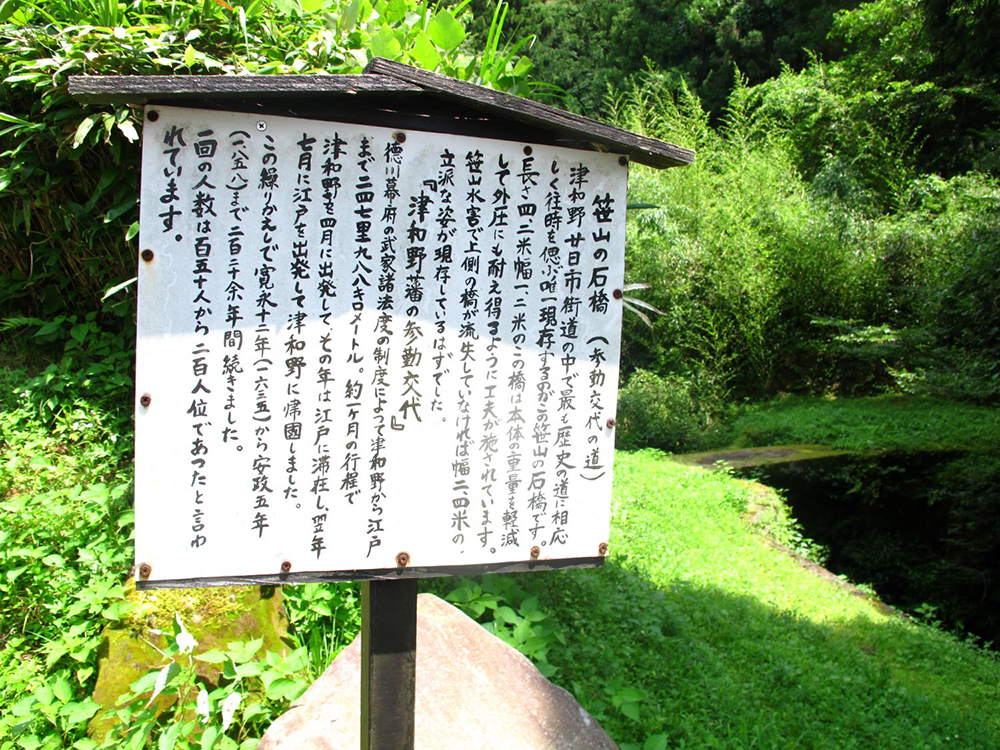 笹山の石橋 (参勤交代の道)
津和野廿日市街道の中で最も歴史の道に相応
しく往時を偲ぶ唯一現存するのがこの笹山の石橋です。
長さ四、二米幅一、二米のこの橋は本体の重量を軽減
して外圧にも耐え得るように工夫が施されています。
笹山水害で上側の橋が流失していなければ幅二、四米の、
立派な姿が現存しているはずでした。
『津和野藩の参勤交代』
徳川幕府の武家諸法度の制度によって津和野から江戸
まで二四七里九八八キロメートル。約一ヶ月の行程で
津和野を四月に出発して、その年は江戸に滞在し、翌年
七月に江戸を出発して津和野に帰國しました。
この繰りかえしで寛永十二年(一六三五)から安政五年
(一八五八)まで二百二十余年間続きました。
一回の人数は百五十人から二百人位であったと言わ
れています。